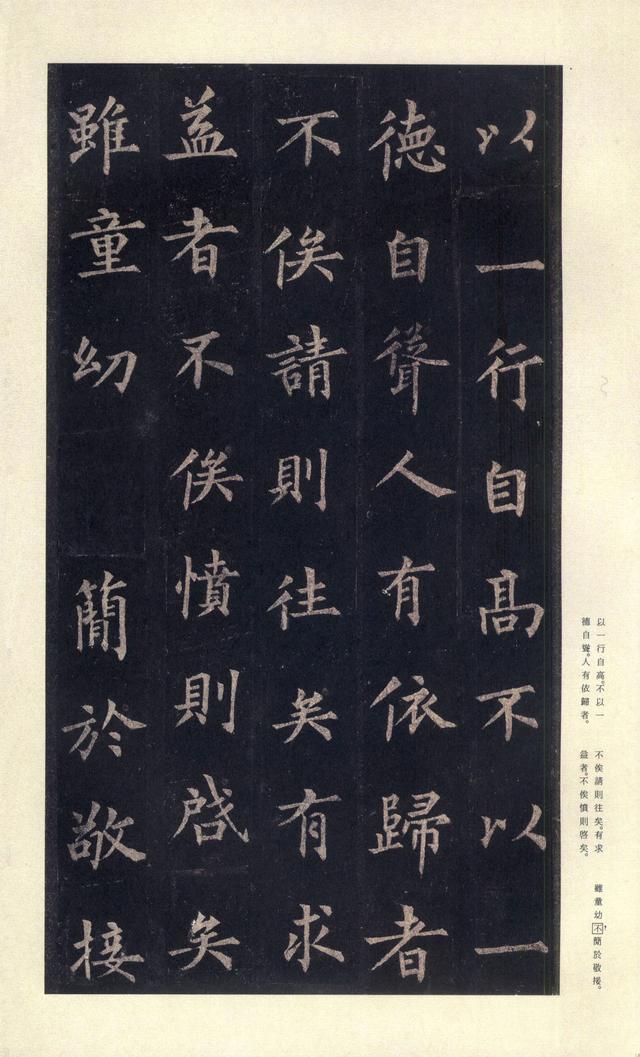 以一行自高不以一
德自聳人有依歸者
不俟請則往矣有求
益者不俟憤則啓矣
雖童幼簡於敬接
以一行自高。不以一
德自聳。人有依歸者。
不俟請則往矣。有求
益者。不俟憤則啓矣。
雖童幼不，簡於敬接。